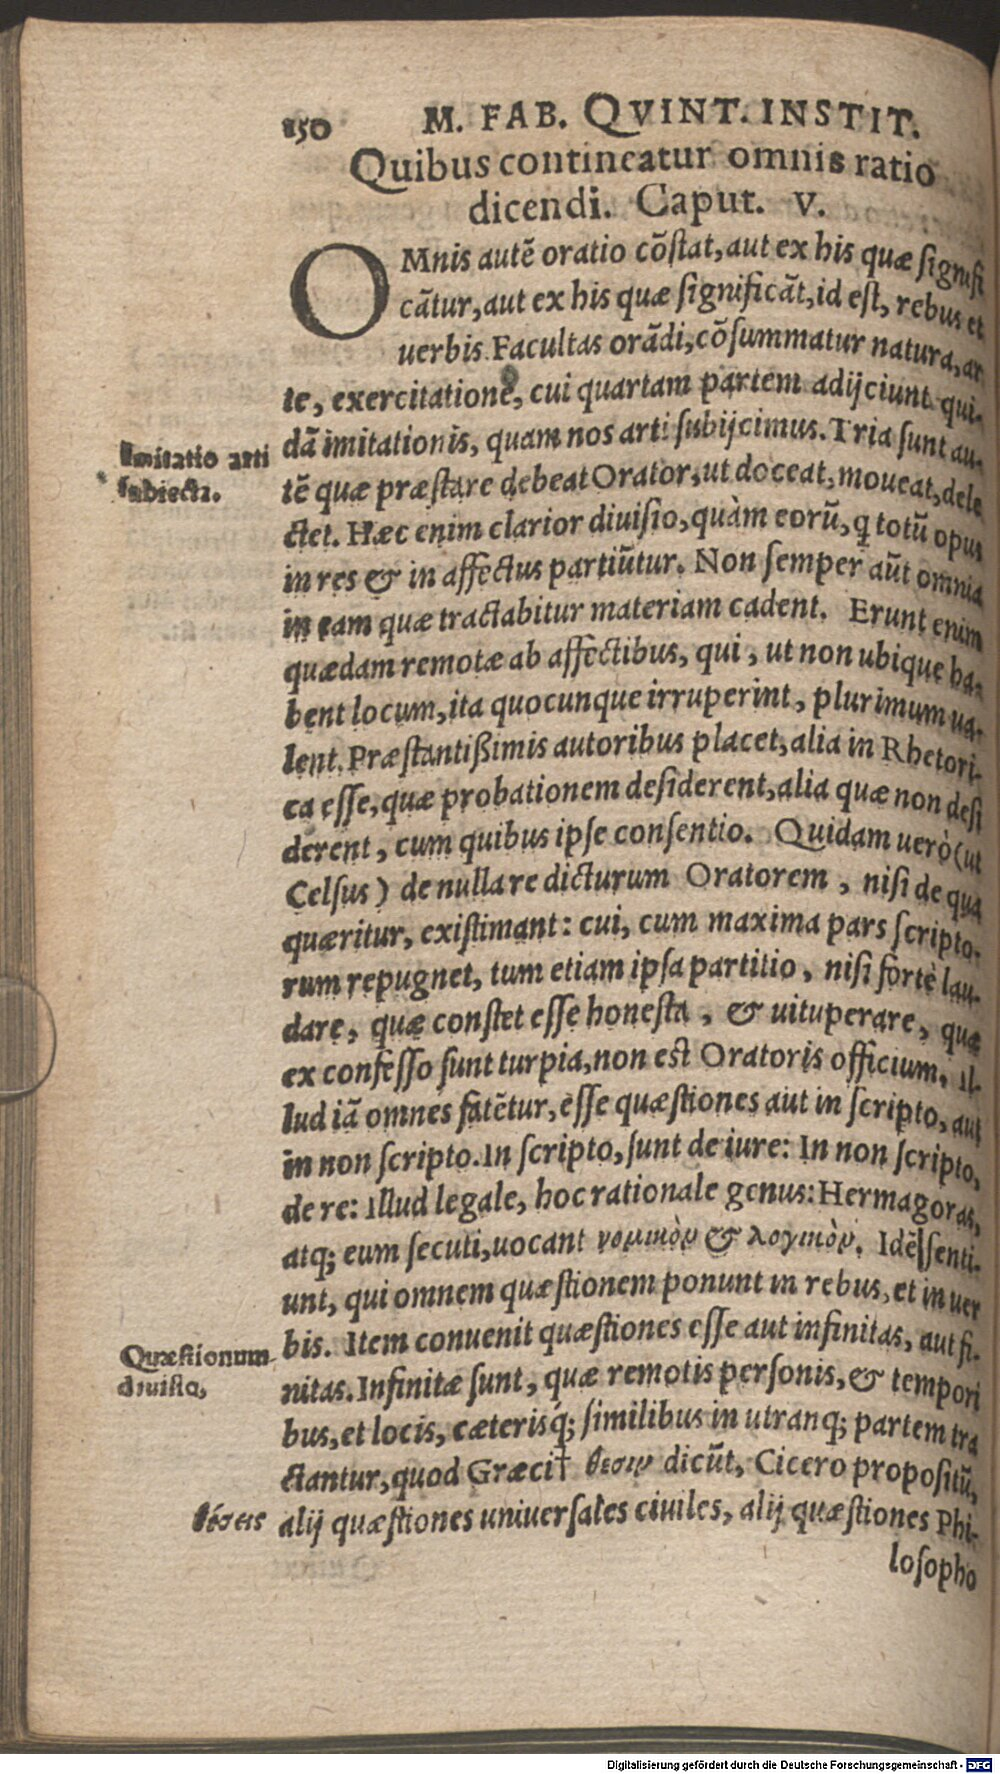 150 M. FAB. QVINT. INSTIT.
Quibus contineatur omnis ratio
dicendi. Caput. V.
OMnis autẽ oratio cõstat, aut ex his quæ signifi
cãtur, aut ex his quæ significãt, id est, rebus et
uerbis. Facultas orãdi, cõsummatur natura, ar
te, exercitatione, cui quartam partem adijciunt qui-
dã imitationis, quam nos arti subijcimus. Tria sunt au-
Imitatio arti
subiecta.
tẽ quæ præstare debeat Orator, ut doceat, moueat, dele
ctet. Hæc enim clarior diuisio, quàm eorũ, q totũ opus
in res & in affectus partiũtur. Non semper aũt omnia
in eam quæ tractabitur materiam cadent. Erunt enim
quædam remotæ ab affectibus, qui, ut non ubique ha-
bent locum, ita quocunque irruperint, plurimum ua-
lent. Præstantißimis autoribus placet, alia in Rhetori-
ca esse, quæ probationem desiderent, alia quæ non desi
derent, cum quibus ipse consentio. Quidam uerò (ut
Celsus) de nulla re dicturum Oratorem, nisi de qua
quæritur, existimant: cui, cum maxima pars scripto-
rum repugnet, tum etiam ipsa partitio, nisi fortè lau-
dare, quæ constet esse honesta, & uituperare, quæ
ex confesso sunt turpia, non est Oratoris officium. Il-
lud iã omnes fatẽtur, esse quæstiones aut in scripto, aut
in non scripto. In scripto, sunt de iure: In non scripto,
de re: Illud legale, hoc rationale genus: Hermagoras,
atq; eum secuti, uocant νομικὸν & λογικὸν. Idẽ senti-
unt, qui omnem quæstionem ponunt in rebus, et in uer
bis. Item conuenit quæstiones esse aut infinitas, aut fi-
Quæstionum
diuisio,
nitas. Infinitæ sunt, quæ remotis personis, & tempori
bus, et locis, cæterisq́; similibus in utranq; partem tra
ctantur, quod Græci† θεσιν dicũt, Cicero propositũ,
θέσεις
alij quæstiones uniuersales ciuiles, alij quæstiones Phi-
losopho
Digitalisierung gefördert durch die Deutsche Forschungsgemeinschaft - DFG